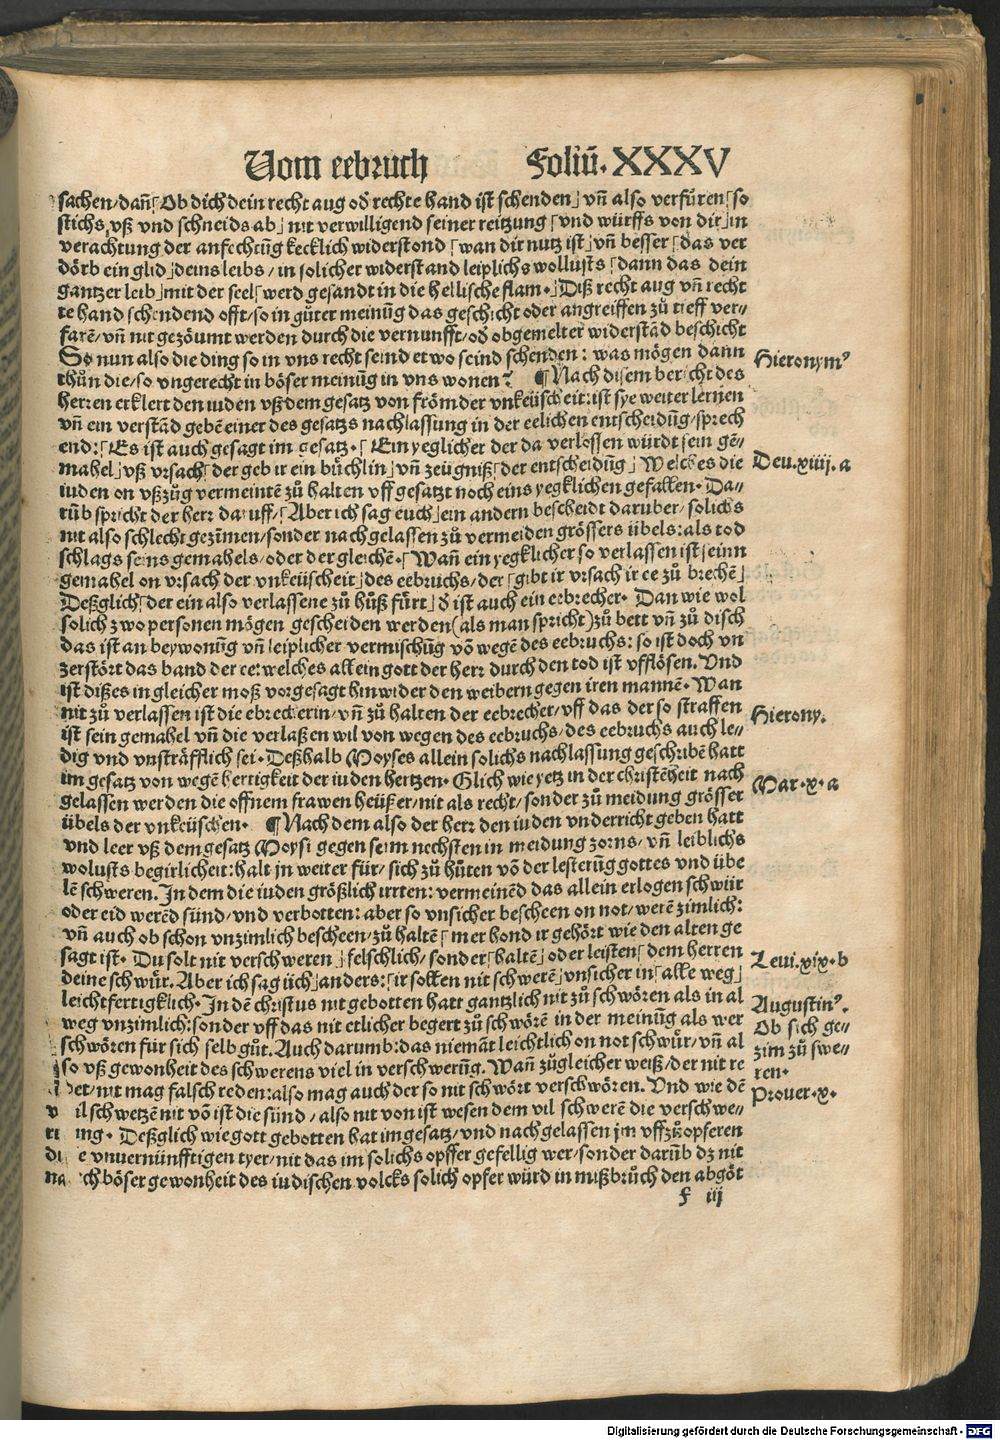 Vom eebruch Foliū. XXXV
sachen/dañ⌈Ob dich dein recht aug od̕ rechte hand ist schenden⌋vñ also verfüren⌈so
stichs vß vnd schneids ab⌋nit verwilligend seiner reitzung⌈vnd würffs von dir⌋in
verachtung der anfechtūg kecklich widerstond⌈wan dir nutz ist⌋vñ besser⌈das ver
dörb ein glid⌋deins leibs/in solicher widerstand leiplichs wollusts⌈dann das dein
gantzer leib⌋mit der seel⌈werd gesandt in die hellische flam.⌋Diß recht aug vñ recht
te hand schendend offt/so in gůter meinūg das geschicht oder angreiffen zů tieff ver⸗
farē/vñ nit gezöumt werden durch die vernunfft/od̕ obgemelter widerstād beschicht
So nun also die ding so in vns recht seind etwo seind schenden: was mögen dann
thůn die/so vngerecht in böser meinūg in vns wonen? ¶Nach disem bericht des
Hieronymꝰ
herren erklert den iuden vß dem gesatz von frömder vnkeüscheit:ist sye weiter lernen
vñ ein verstād gebē einer des gesatzs nachlassung in der eelichen entscheidūg/sprech
end:⌈Es ist auch gesagt im gesatz.⌈Ein yeglicher der da verlossen würdt sein gē⸗
mahel⌋vß vrsach⌈der geb ir ein bůchlin⌋vñ zeügniß⌈der entscheidūg⌋Welches die
Deu.xiiij.a
iuden on vßzůg vermeintē zů halten vff gesatzt noch eins yegklichen gefallen. Da⸗
rūb spricht der herr daruff/⌈Aber ich sag euch⌋ein andern bescheidt daruber/solichs
nit also schlecht gezīmen/sonder nachgelassen zů vermeiden grössers übels:als tod
schlags seins gemahels/oder der gleichē.⌈Wañ ein yegklicher so verlassen ist seinn
gemahel on vrsach der vnkeüscheit⌋des eebruchs/der⌈gibt ir vrsach ir ee zů brechē⌋
Deßglich⌈der ein also verlassene zů hůß fürt⌋d̕ ist auch ein eebrecher. Dan wie wol
solich zwo personen mögen gescheiden werden(als man spricht)zů bett vñ zů disch
das ist an beywonūg vñ leiplicher vermischūg võ wegē des eebruchs: so ist doch vn
zerstört das band der ee:welches allein gott der herr durch den tod ist vfflösen. Vnd
ist dißes in gleicher moß vorgesagt hinwider den weibern gegen iren mannē. Wan
nit zů verlassen ist die ebrecherin/vñ zů halten der eebrecher/vff das der so straffen
Hierony.
ist sein gemahel vñ die verlaßen wil von wegen des eebruchs/des eebruchs auch le⸗
dig vnd vnsträfflich sei. Deßhalb Moyses allein solichs nachlassung geschribē hatt
im gesatz von wegē hertigkeit der iuden hertzen. Glich wie yetz in der christēheit nach
Mar.x.a
gelassen werden die offnem frawen heüßer/nit als recht/sonder zů meidung grösser
übels der vnkeüschen. ¶Nach dem also der herr den iuden vnderricht geben hatt
vnd leer vß dem gesatz Moysi gegen seim nechsten in meidung zorns/vñ leiblichs
wolusts begirlicheit:halt in weiter für/sich zů hůten võ der lesterūg gottes vnd übe
lē schweren. In dem die iuden größlich irrten: vermeinēd das allein erlogen schwür
oder eid werēd sünd/vnd verbotten: aber so vnsicher bescheen on not/werē zimlich:
vñ auch ob schon vnzimlich bescheen/zů haltē⌈mer hond ir gehört wie den alten ge
sagt ist. Du solt nit verschweren⌋felschlich/sonder⌈haltē⌋oder leisten⌈dem herren
Leui.xix.b
deine schwür. Aber ich sag üch⌋anders:⌈ir sollen nit schwerē⌋vnsicher in⌈alle weg⌋
leichtfertigklich. In dē christus nit gebotten hatt gantzlich nit zů schwören als in al
Augustinꝰ.
weg vnzimlich:sonder vff das nit etlicher begert zů schwörē in der meinūg als wer
Ob sich ge⸗
schwören für sich selb gůt. Auch darumb:das niemāt leichtlich on not schwür/vñ al
zim zů swe⸗
so vß gewonheit des schwerens viel in verschwerūg. Wañ zůgleicher weiß/der nit re
ren.
det/nit mag falsch reden:also mag auch der so nit schwört verschwören. Vnd wie dē
Prouer.x.
v il schwetzē nit võ ist die sünd/also nit von ist wesen dem vil schwerē die verschwe⸗
ri ing. Deßglich wie gott gebotten hat im gesatz/vnd nachgelassen jm vffzůopferen
di e vnuernünfftigen tyer/nit das im solichs opffer gefellig wer/sonder darūb dz nit
na ch böser gewonheit des iudischen volcks solich opfer würd in mißbrůch den abgöt
f iij
Digitalisierung gefördert durch die Deutsche Forschungsgemeinschaft - DFG